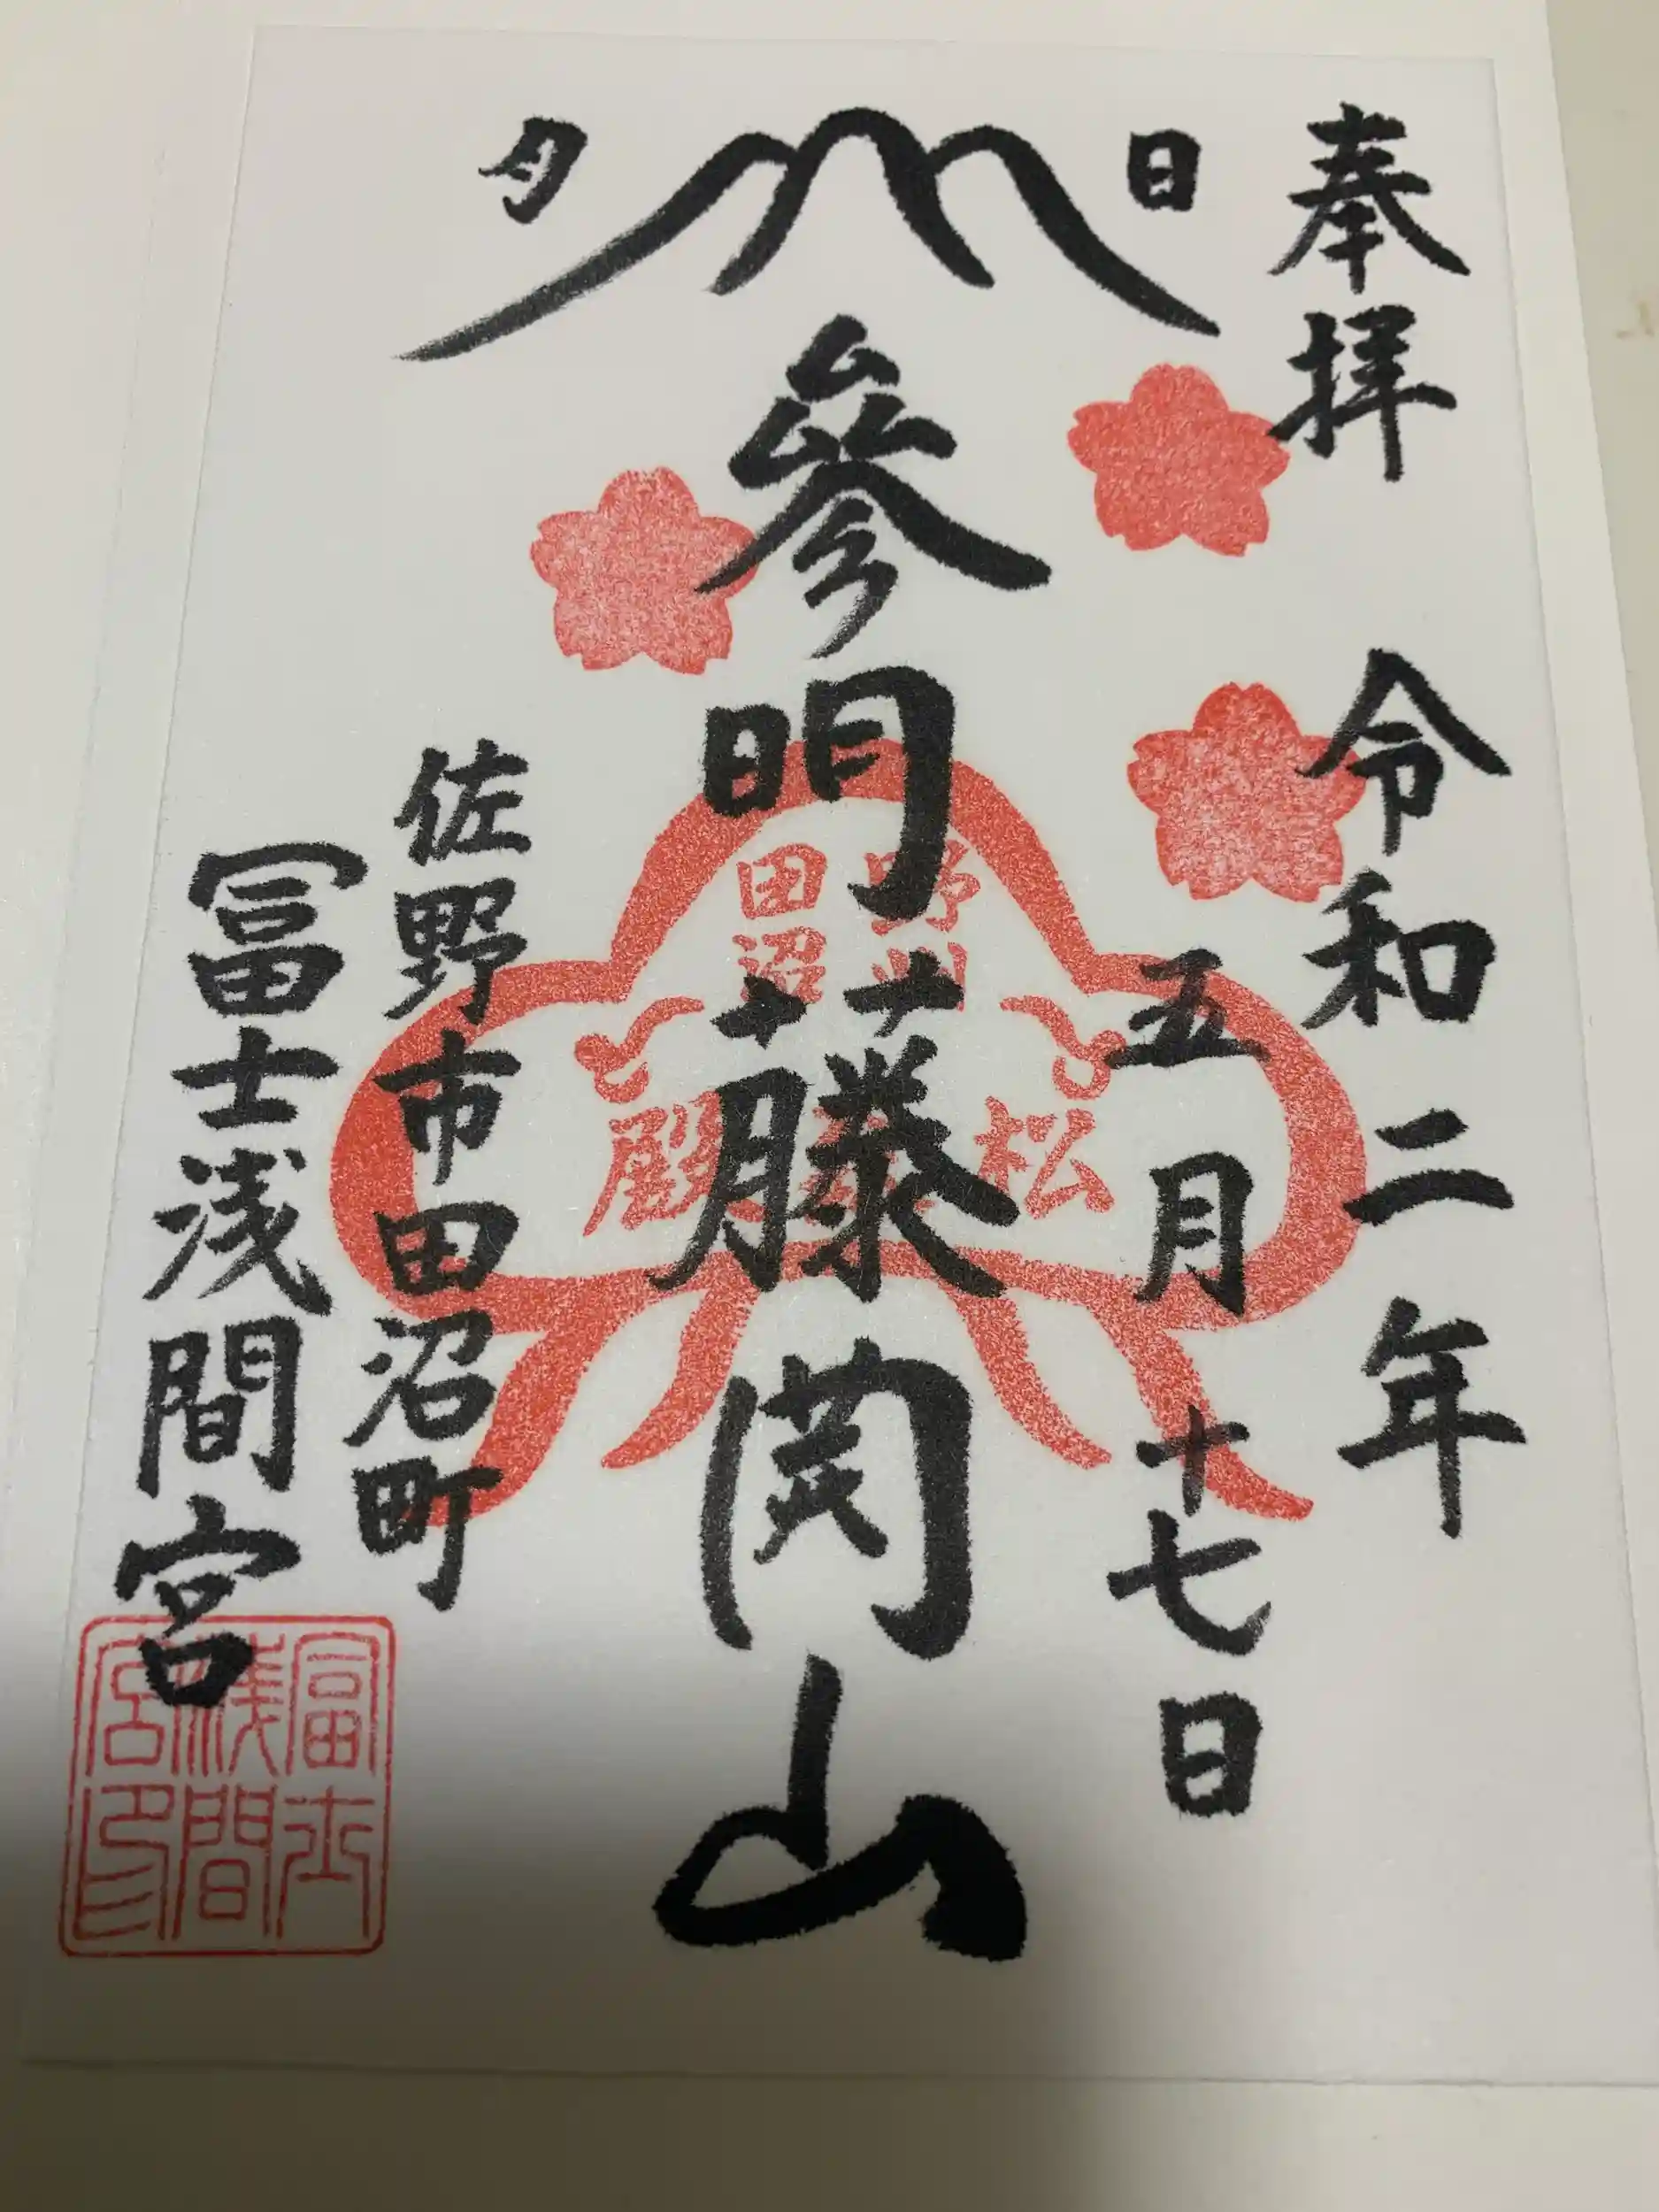 奉拝
令和二年
五月十七日
日
月
參明藤開山
野州
田沼
松
殿
佐野市田沼町
冨士浅間宮
冨士
浅間
宮印